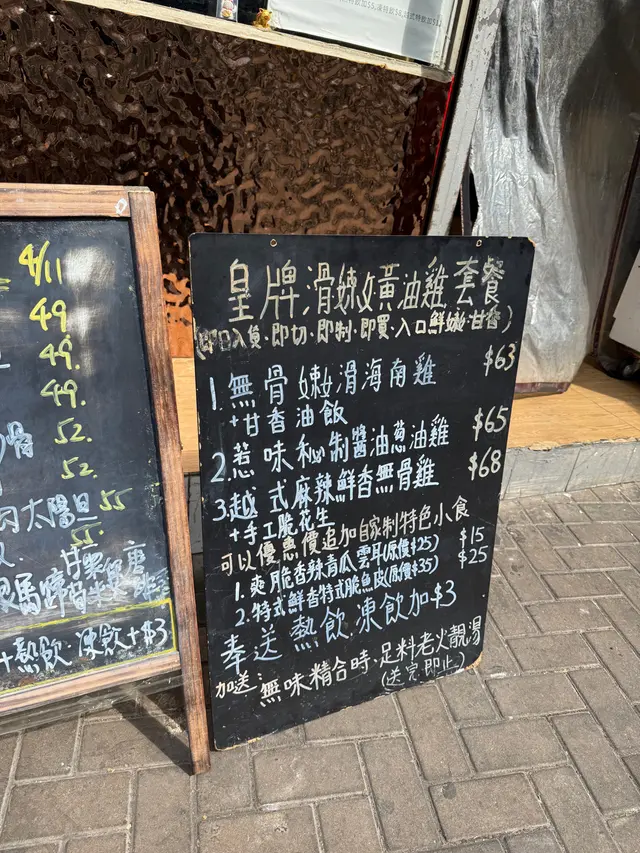 4/11
49
49.
49.
52.
52.
肉太陽旦 55
55.
+熱飲.凍飲+$3
皇牌滑嫩黃油雞套餐
(即日入貨·即切·即制·即買·入口鮮嫩·甘香)
1. 無骨嫩滑海南雞 $63
+甘香油飯
2. 惹味私制醬油蔥油雞 $65
3. 越式麻辣鮮香無骨雞 $68
+手工脆花生
可以優惠價追加自家制特色小食
1. 爽脆香辣青瓜雲耳(原價$25) $15
2. 特式鮮香特式脆魚皮(原價$35) $25
奉送熱飲.凍飲加$3
加送: 無味精合時.足料老火靚湯
(送完即止)